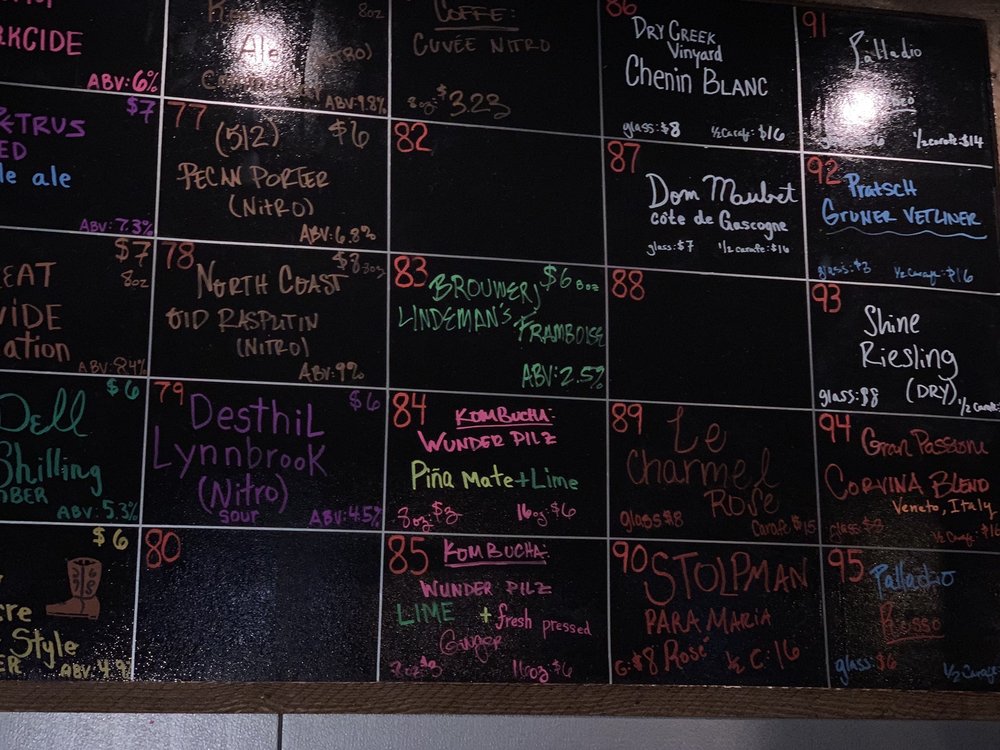 RKCIDE
ABV: 6%
$7
ETRUS
ED
le ale
ABV: 7.3%
$7
8oz
EAT
VIDE
ation
ABV: 8.4%
$6
Dell
Shilling
BER
ABV: 5.3%
$6
cre
Style
ER
ABV: 4.9%
8oz
Ale
(NITRO)
ABV: 9.8%
77
(512)
$6
PECAN PORTER
(NITRO)
ABV: 6.8%
78
$8 8oz
NORTH COAST
OLD RASPUTIN
(NITRO)
ABV: 9%
79
$6
DESTHIL
LYNNBROOK
(Nitro)
SOUR
ABV: 4.5%
80
COFFE:
CUVÉE NITRO
8oz: $3.23
82
83
BROUWERJ
$6 8oz
LINDEMAN'S
FRAMBOISE
ABV: 2.5%
84
KOMBUCHA:
WUNDER PILZ
Piña Mate + Lime
8oz: $3
16oz: $6
85
KOMBUCHA:
WUNDER PILZ
LIME + fresh pressed
Ginger
16oz $6
86
DRY GREEK
Vinyard
Chenin BLANC
glass: $8
½ Carafe: $16
87
Dom Maubet
côte de Gascogne
glass: $7
½ carafe: $16
88
89
Le
Charmel
Rose
glass: $8
Carafe: $15
90
STOLPMAN
PARA MARIA
G: $8 Rosé ½ C: 16
91
Palladio
½ carafe: $14
92
Pratsch
GRUNER VETLINER
glass: $8
½ Carafe: $16
93
Shine
Riesling
(DRY)
glass: $8
½ Carafe:
94
Gran Passione
CORVINA BLEND
Veneto, Italy
glass: $8
½ Carafe:
95
Palladio
Rosso
glass: $6
½ Carafe